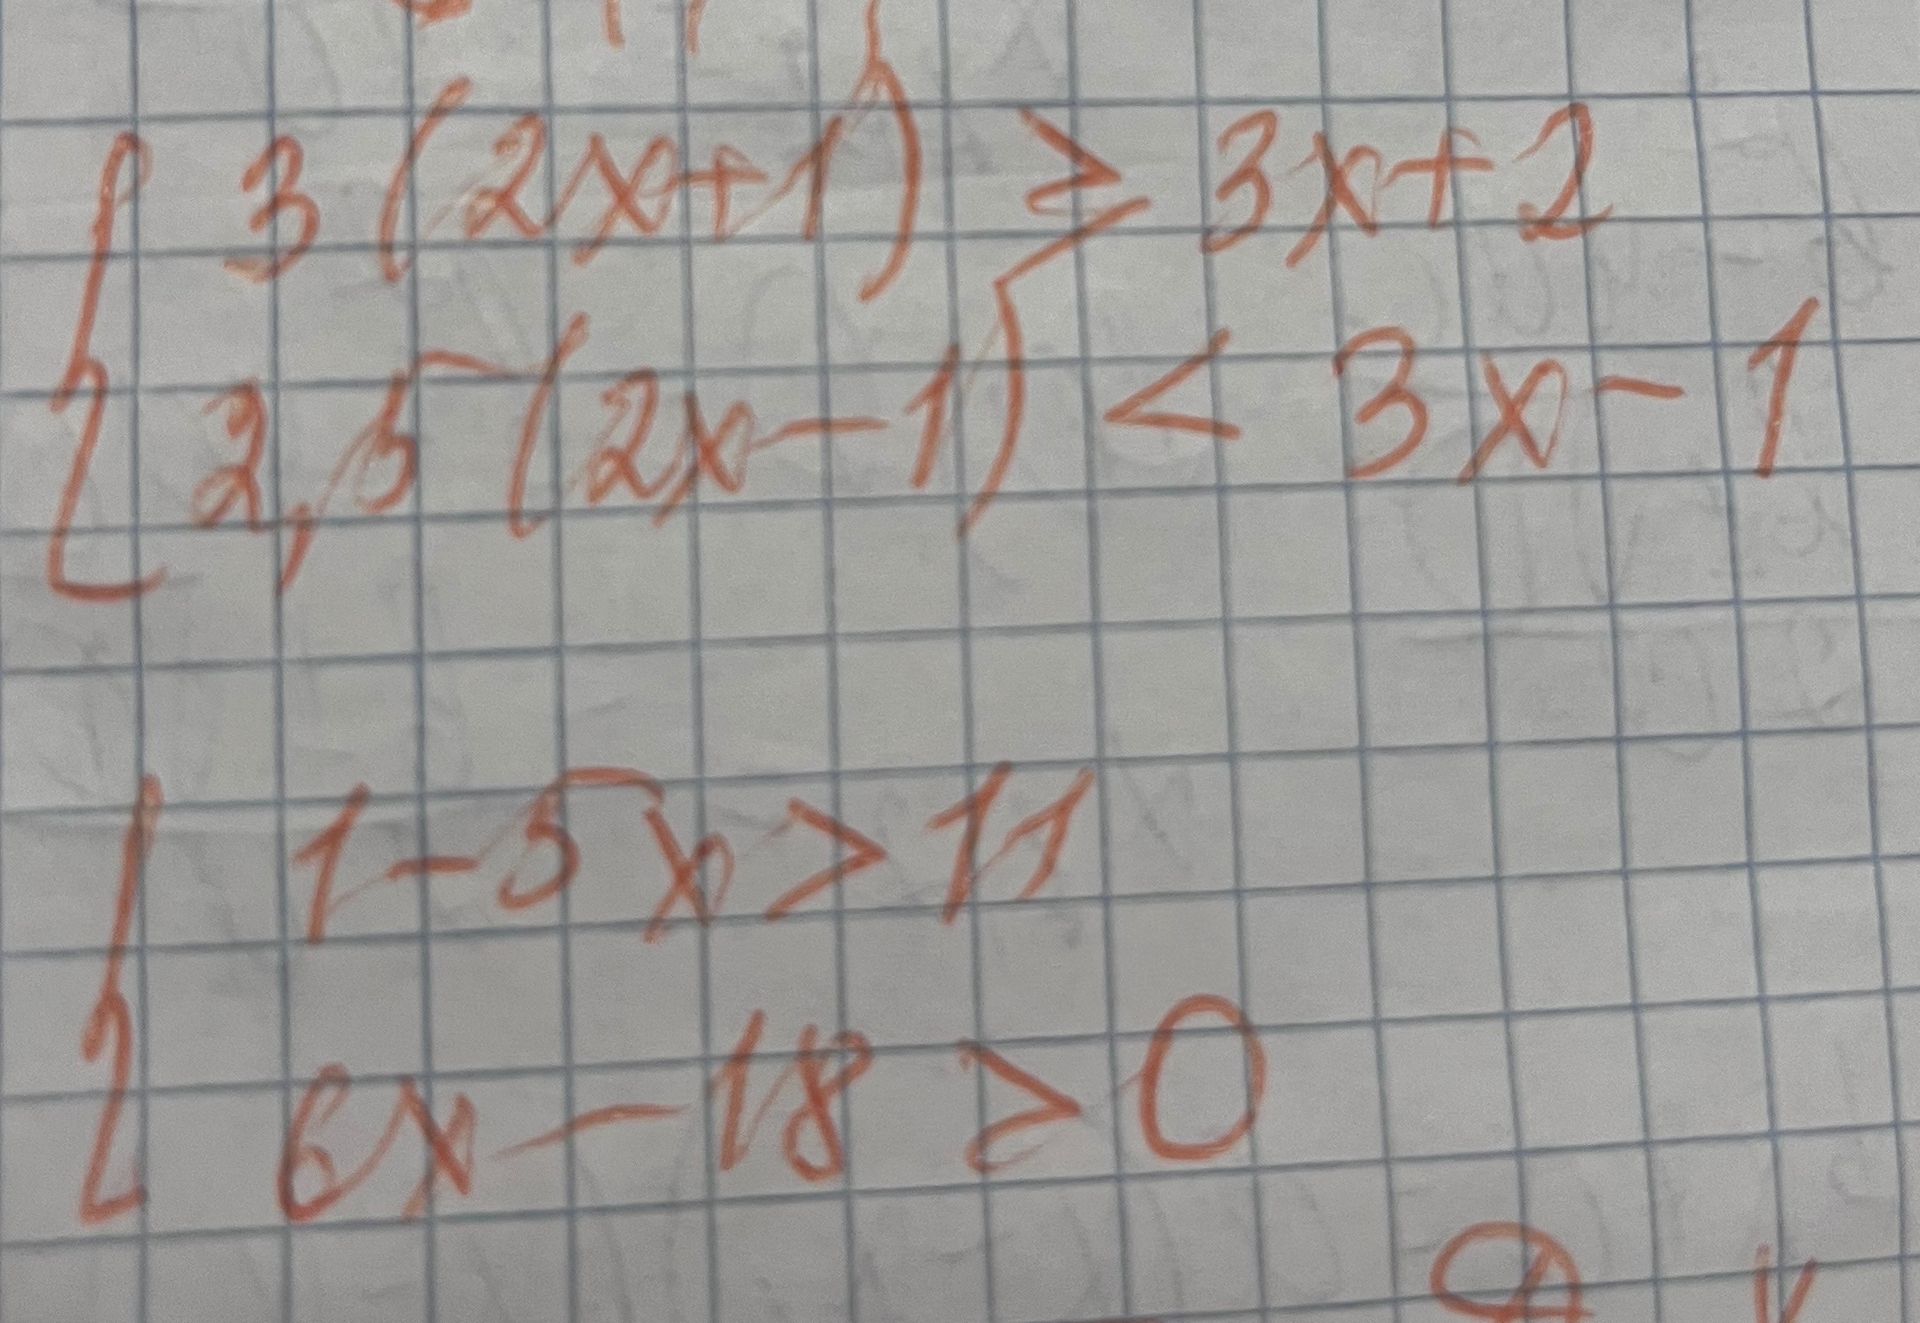 3(2x+1) ≥ 3x+2
2,5(2x-1) < 3x-1
1-5x > 11
6x-18 > 0